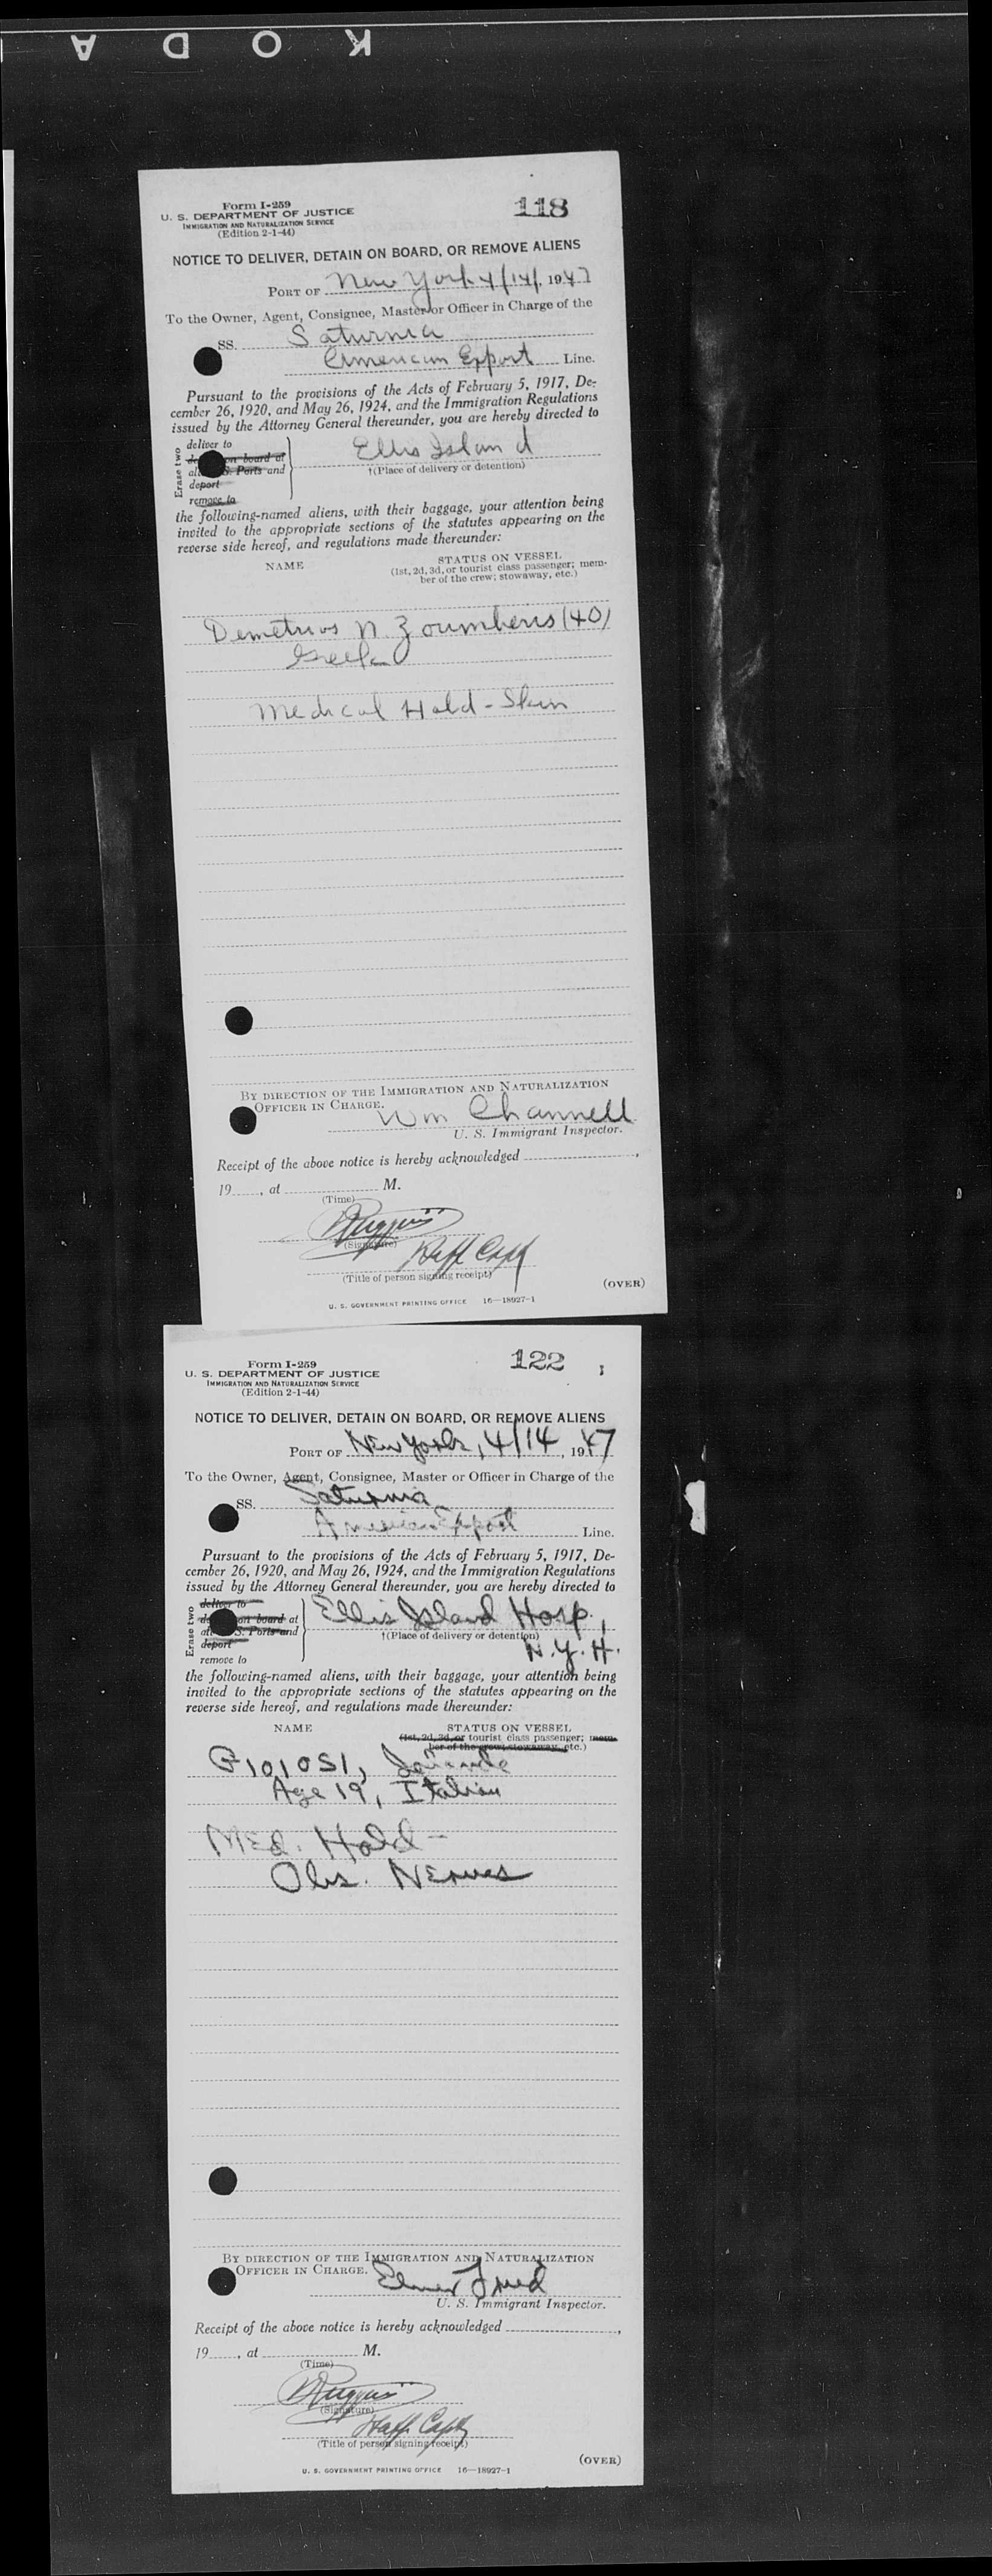 KODA
Form I-259
U. S. DEPARTMENT OF JUSTICE
IMMIGRATION AND NATURALIZATION SERVICE
(Edition 2-1-44)
118
NOTICE TO DELIVER, DETAIN ON BOARD, OR REMOVE ALIENS
PORT OF New York 4/14/, 1947
To the Owner, Agent, Consignee, Master or Officer in Charge of the
SS. Saturnia
American Export Line.
Pursuant to the provisions of the Acts of February 5, 1917, De-
cember 26, 1920, and May 26, 1924, and the Immigration Regulations
issued by the Attorney General thereunder, you are hereby directed to
Erase two
deliver to
on board at
S. Ports and
deport
remove to
Ellis Island
†(Place of delivery or detention)
the following-named aliens, with their baggage, your attention being
invited to the appropriate sections of the statutes appearing on the
reverse side hereof, and regulations made thereunder:
NAME
STATUS ON VESSEL
(1st, 2d, 3d, or tourist class passenger; mem-
ber of the crew; stowaway, etc.)
Demetrios N. Zoumberis (40)
Greek
Medical Hold - Skin
BY DIRECTION OF THE IMMIGRATION AND NATURALIZATION
OFFICER IN CHARGE.
Wm Channell
U. S. Immigrant Inspector.
Receipt of the above notice is hereby acknowledged ,
19 , at M.
(Time)
(Signature)
Staff Capt
(Title of person signing receipt)
(OVER)
U. S. GOVERNMENT PRINTING OFFICE 16—18927-1
Form I-259
U. S. DEPARTMENT OF JUSTICE
IMMIGRATION AND NATURALIZATION SERVICE
(Edition 2-1-44)
122
NOTICE TO DELIVER, DETAIN ON BOARD, OR REMOVE ALIENS
PORT OF New York, 4/14, 1947
To the Owner, Agent, Consignee, Master or Officer in Charge of the
SS. Saturnia
American Export Line.
Pursuant to the provisions of the Acts of February 5, 1917, De-
cember 26, 1920, and May 26, 1924, and the Immigration Regulations
issued by the Attorney General thereunder, you are hereby directed to
Erase two
deliver to
on board at
S. Ports and
deport
remove to
Ellis Island Hosp.,
†(Place of delivery or detention)
N.Y.H.
the following-named aliens, with their baggage, your attention being
invited to the appropriate sections of the statutes appearing on the
reverse side hereof, and regulations made thereunder:
NAME
STATUS ON VESSEL
(1st, 2d, 3d, or tourist class passenger; mem-
ber of the crew; stowaway, etc.)
Age 19, Italian
Med. Hold -
Obs. Nerves
BY DIRECTION OF THE IMMIGRATION AND NATURALIZATION
OFFICER IN CHARGE.
Elmer Fried
U. S. Immigrant Inspector.
Receipt of the above notice is hereby acknowledged ,
19 , at M.
(Time)
(Signature)
Staff Capt
(Title of person signing receipt)
(OVER)
U. S. GOVERNMENT PRINTING OFFICE 16—18927-1